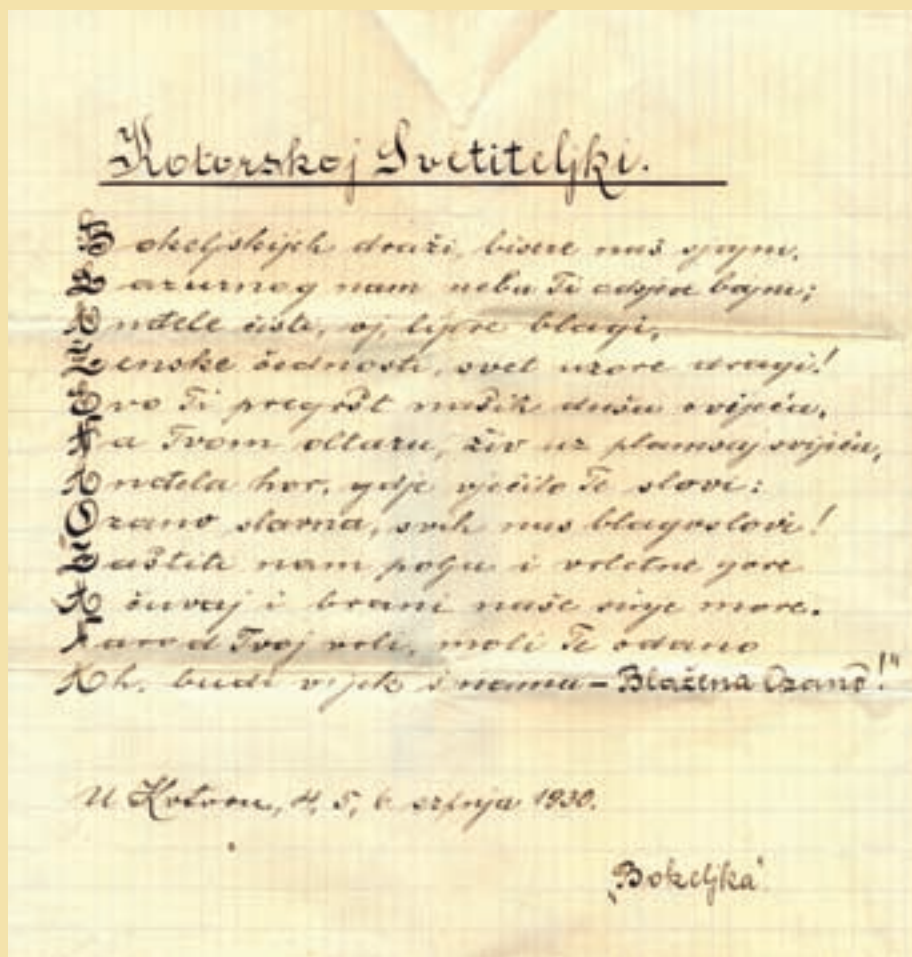 Kotorskoj Svetiteljki.
Bokeljskijeh draži, bisere naš sjajni,
Lazurnog nam neba Ti odsjev bajni;
Anđele čisti, oj, lijere blagi,
Ženske čednosti, svet uzore dragi!
Evo Ti pregršt naših duša cvijeća,
Na Tvom oltaru, živ uz plamsaj svijeća,
Anđela hor, gdje vječito Te slovi:
Ozano slavna, svih nas blagoslovi!
Zaštiti nam polja i vrletne gore
A čuvaj i brani naše sinje more.
Narod Tvoj vrli, moli Te odano
Ah, budi vijek s nama – Blažena Ozano!"
U Kotoru, 4, 5, 6 srpnja 1930.
„Bokeljka"